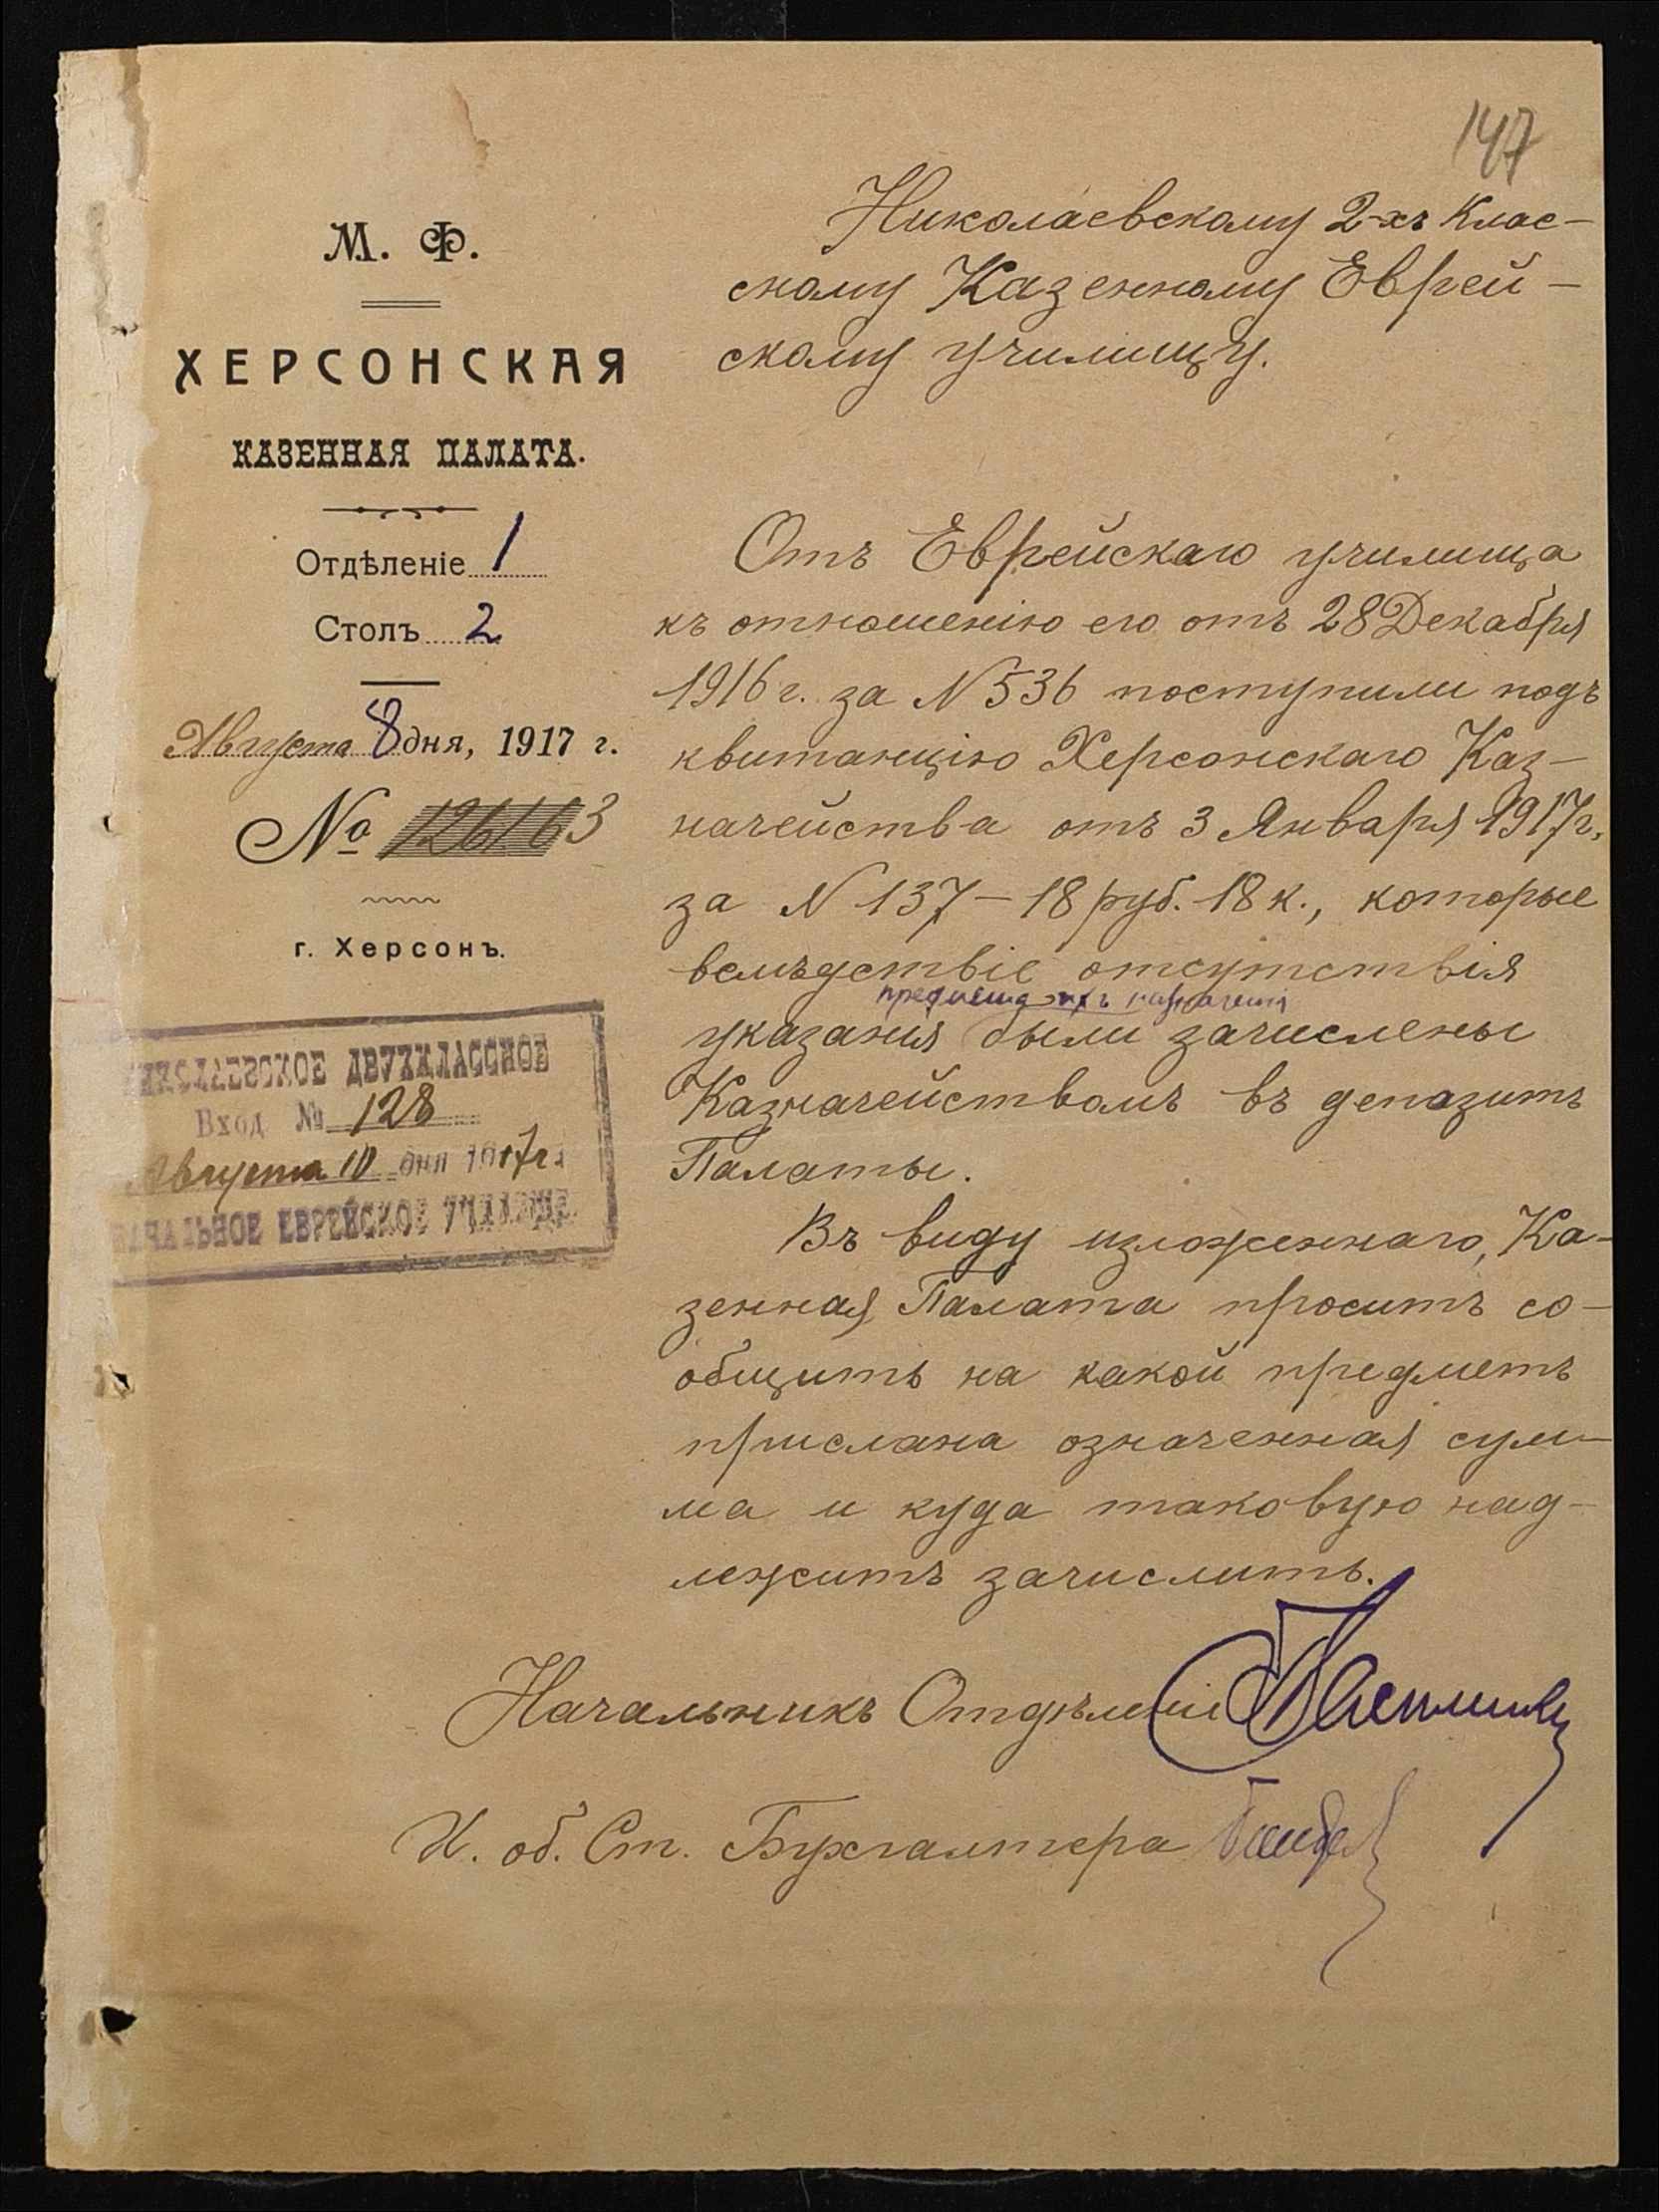 147
М. Ф.
ХЕРСОНСКАЯ
КАЗЕННАЯ ПАЛАТА.
Отдѣленіе 1
Столъ 2
Августа 8 дня, 1917 г.
№ 126163
г. Херсонъ.
НИКОЛАЕВСКОЕ ДВУХКЛАССНОЕ
Вход. № 128
Августа 10 дня 1917 г.
НАЧАЛЬНОЕ ЕВРЕЙСКОЕ УЧИЛИЩЕ
Николаевскому 2-хъ Клас-
скому Казенному Еврей-
скому училищу.
Отъ Еврейскаго училища
къ отношенію его отъ 28 Декабря
1916 г. за N 536 поступили подъ
квитанцію Херсонскаго Каз-
начейства отъ 3 Января 1917 г.
за N 137 – 18 руб. 18 к., которые
вслѣдствіе отсутствія
предмета ихъ назначенія
указанія были зачислены
Казначействомъ въ депозитъ
Палаты.
Въ виду изложеннаго, Ка-
зенная Палата проситъ со-
общить на какой предметъ
прислана означенная сум-
ма и куда таковую над-
лежитъ зачислить.
Начальникъ Отдѣленія
И. об. Ст. Бухгалтера